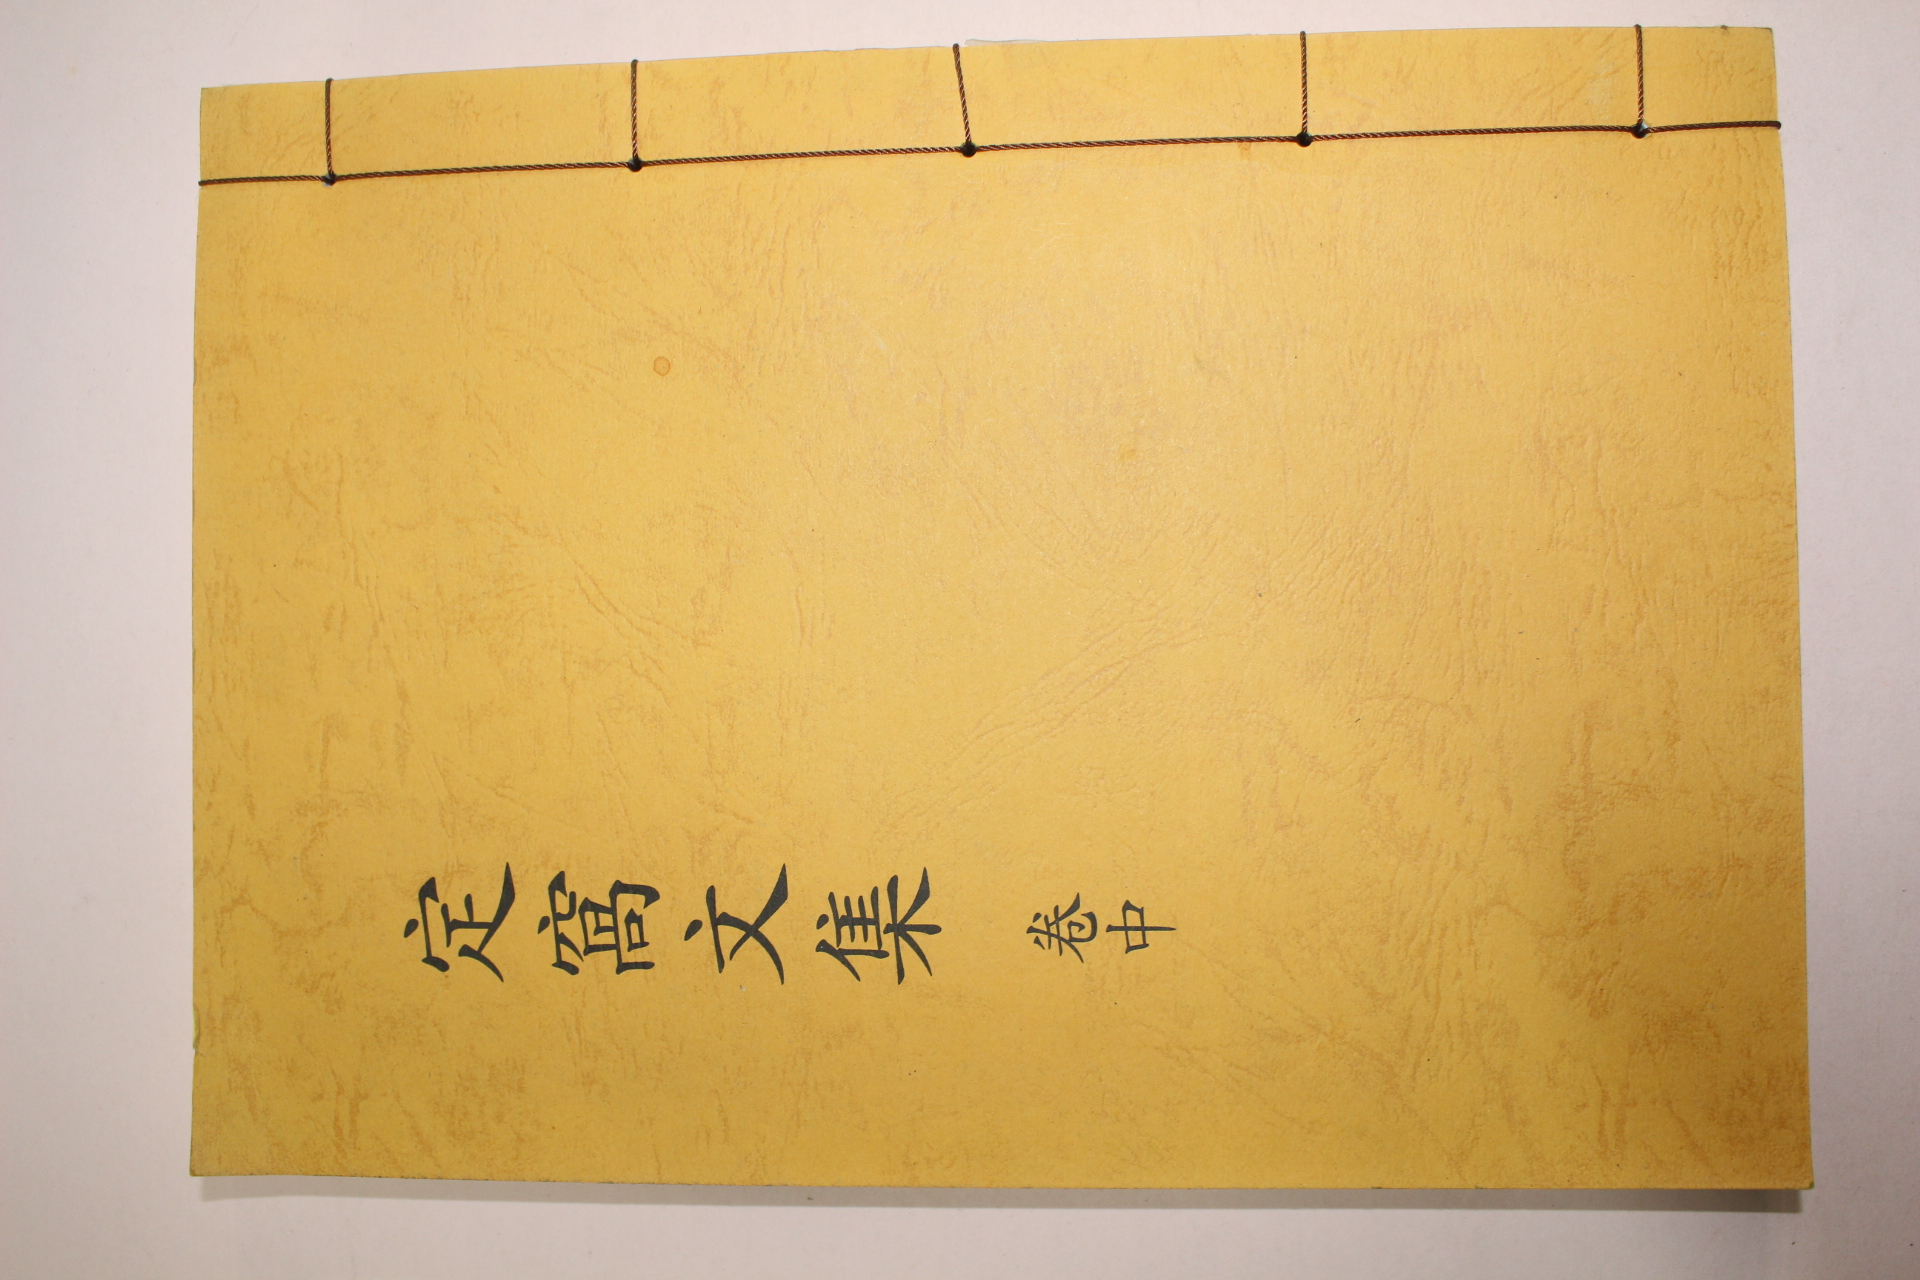 定窩文集 卷中